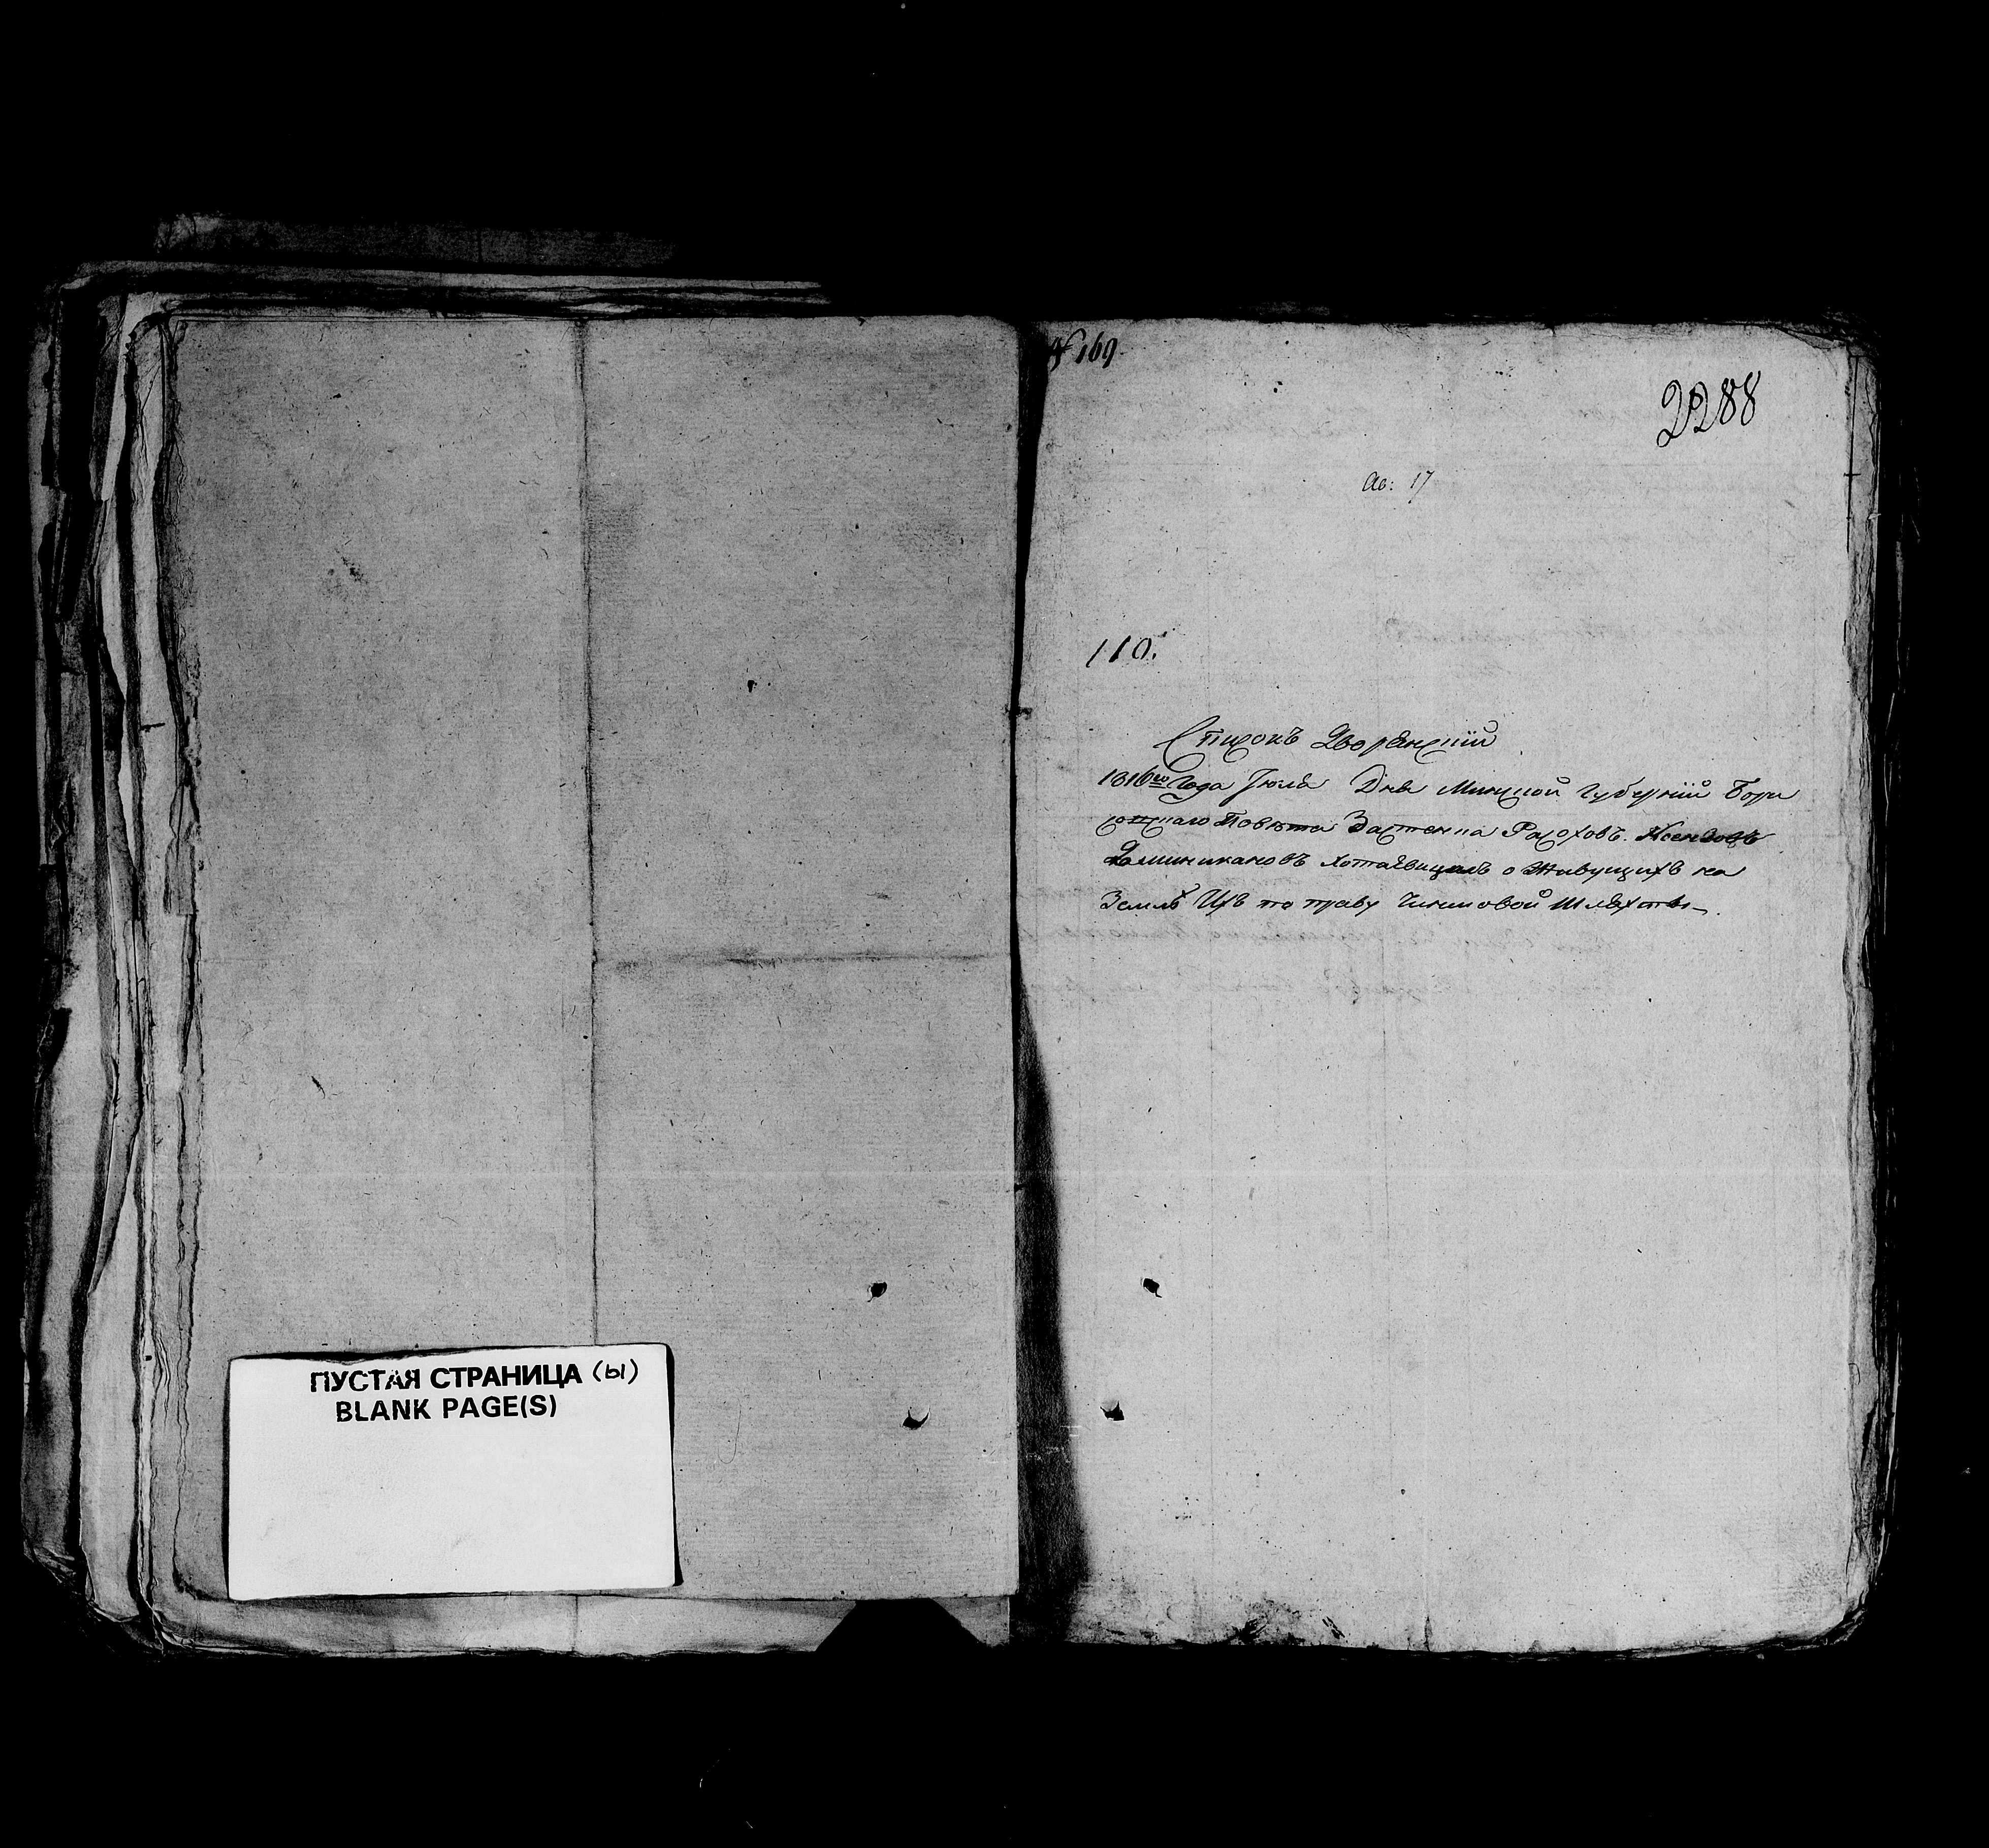 ПУСТАЯ СТРАНИЦА (Ы)
BLANK PAGE(S)
№ 169.
2288
Ав: 17
110.
Списокъ Дворянскій
1816го Года Іюля Дня Минской Губерніи Бори
совскаго Повѣта Застенка Ксендзовъ
Доминикановъ Хотаевицкихъ о Живущихъ на
Землѣ Ихъ по праву Чиншовой Шляхты